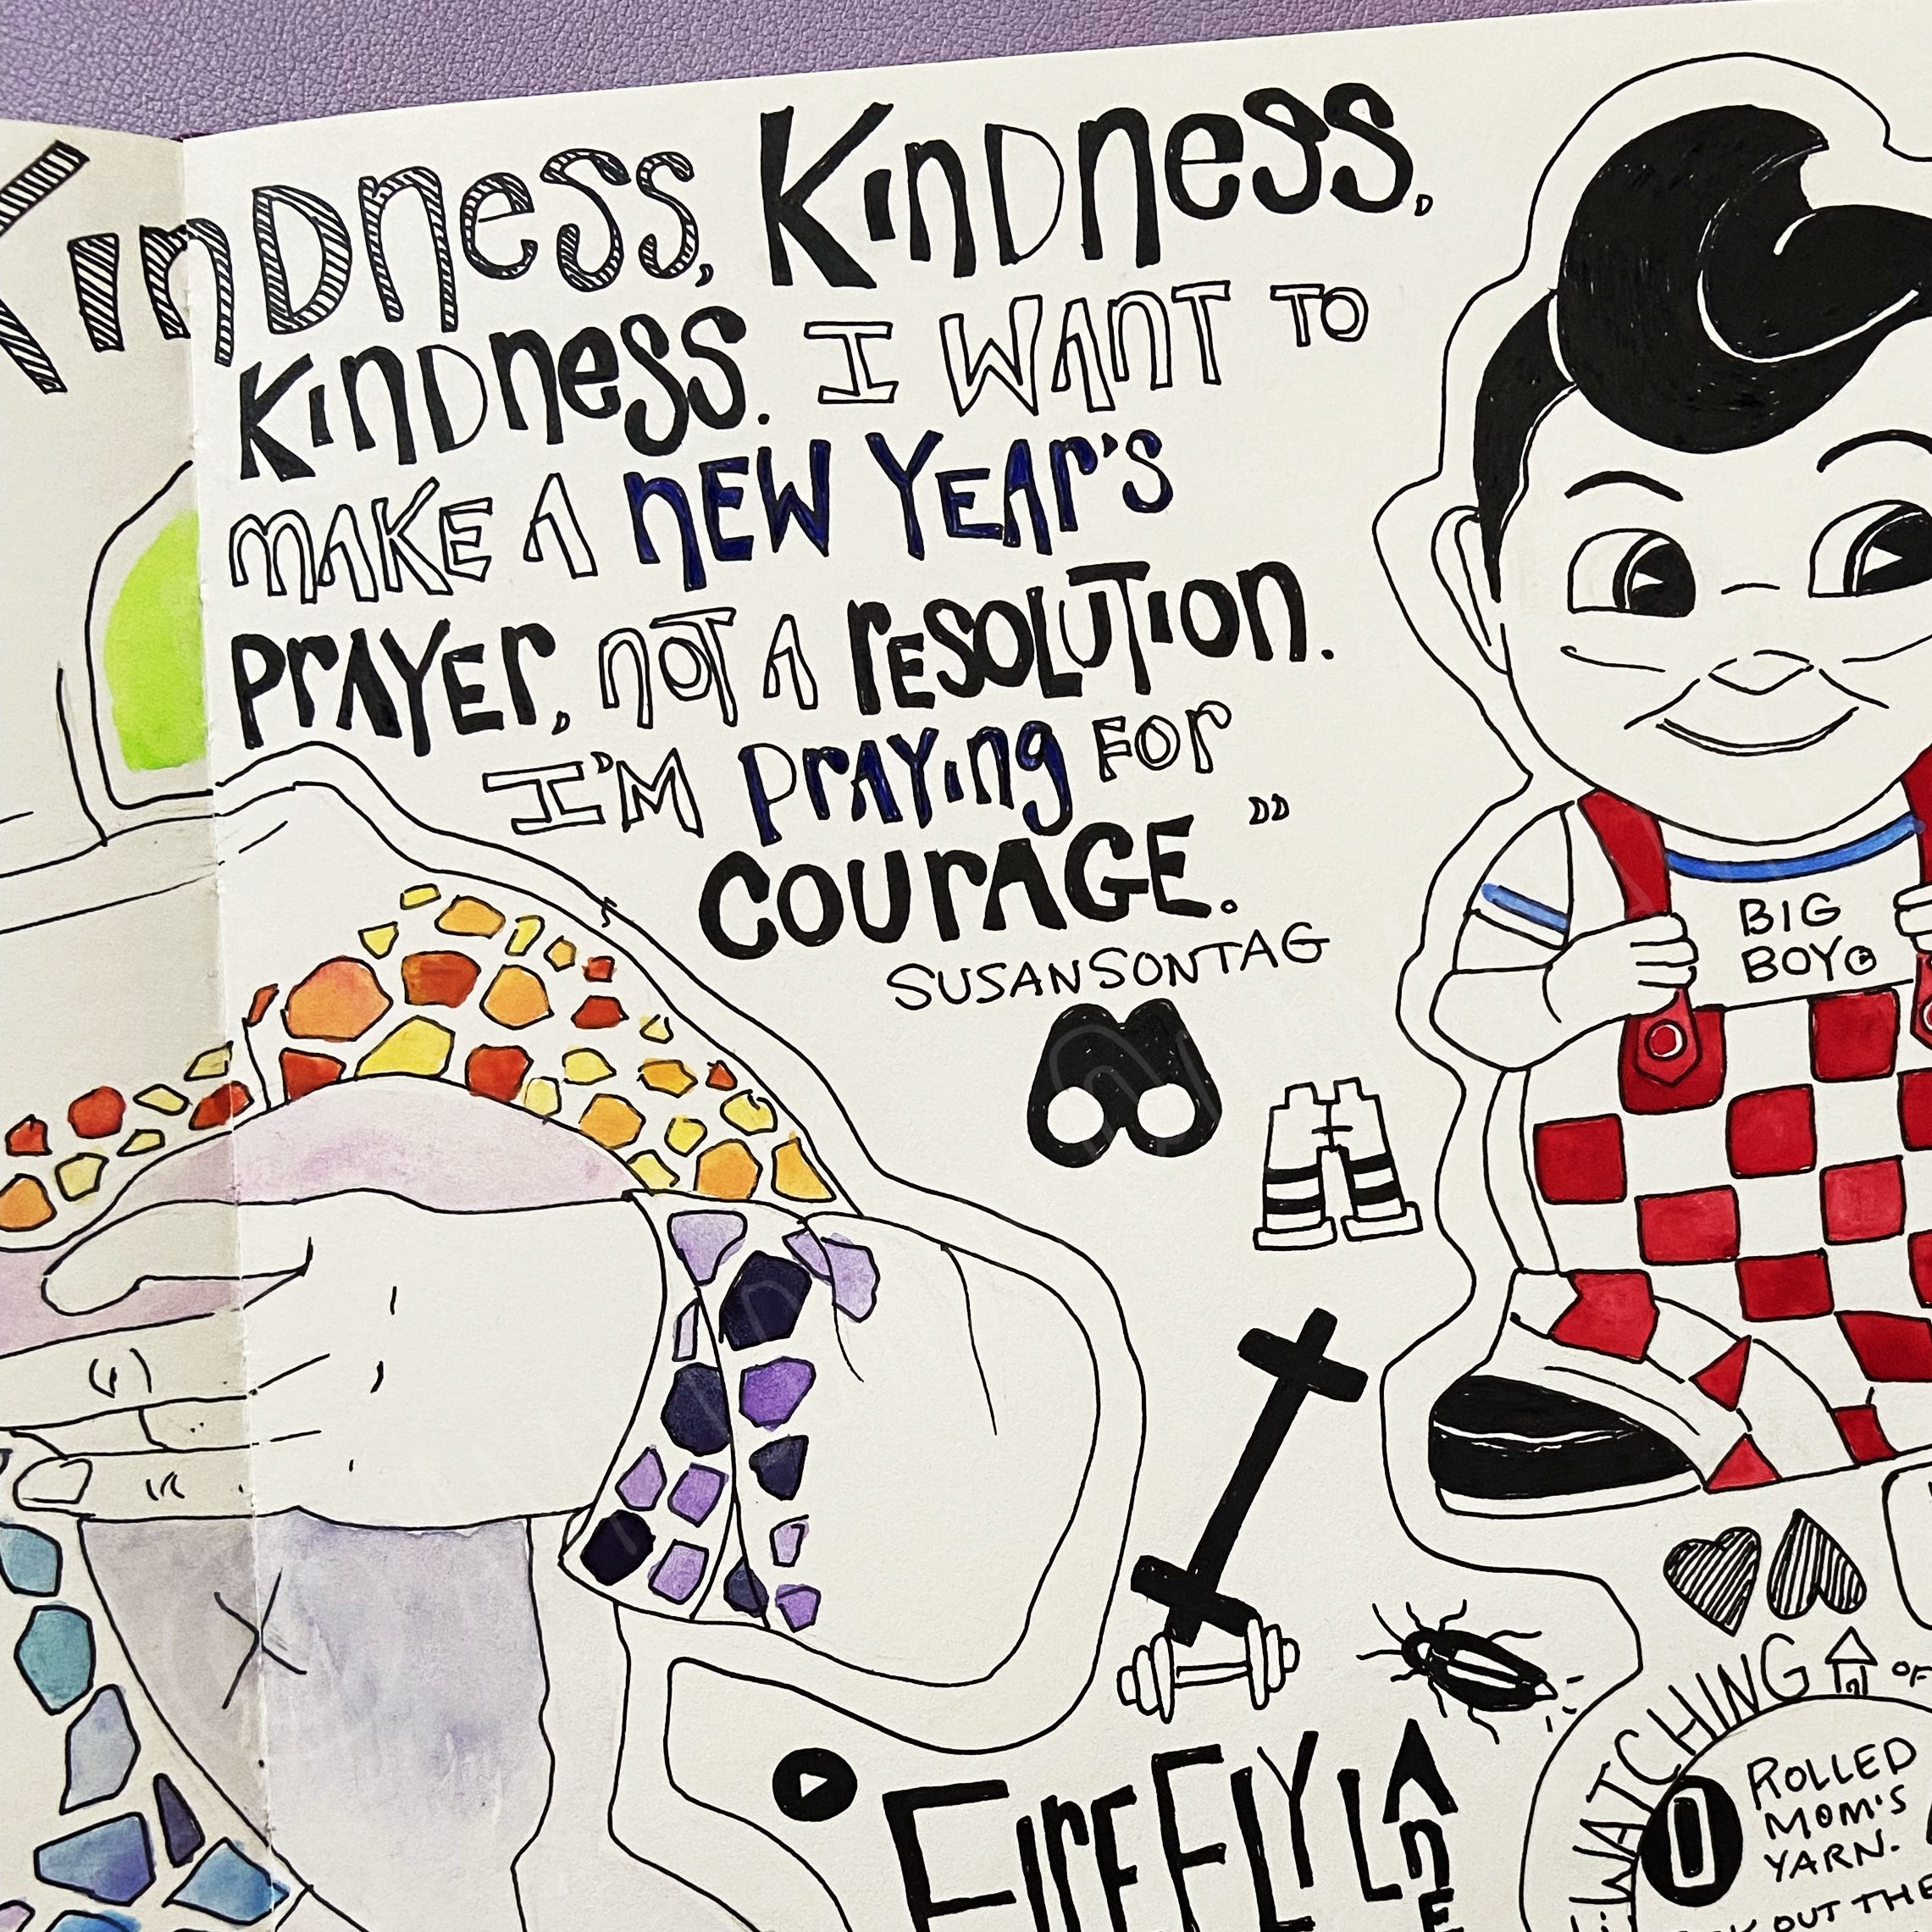 Kindness, Kindness,
Kindness. I WANT TO
MAKE A NEW YEAR'S
PRAYER, NOT A RESOLUTION.
I'M PRAYING FOR
COURAGE."
SUSAN SONTAG
BIG
BOY
FIREFLY LANE
WATCHING
OF
ROLLED
MOM'S
YARN.
OUT THE